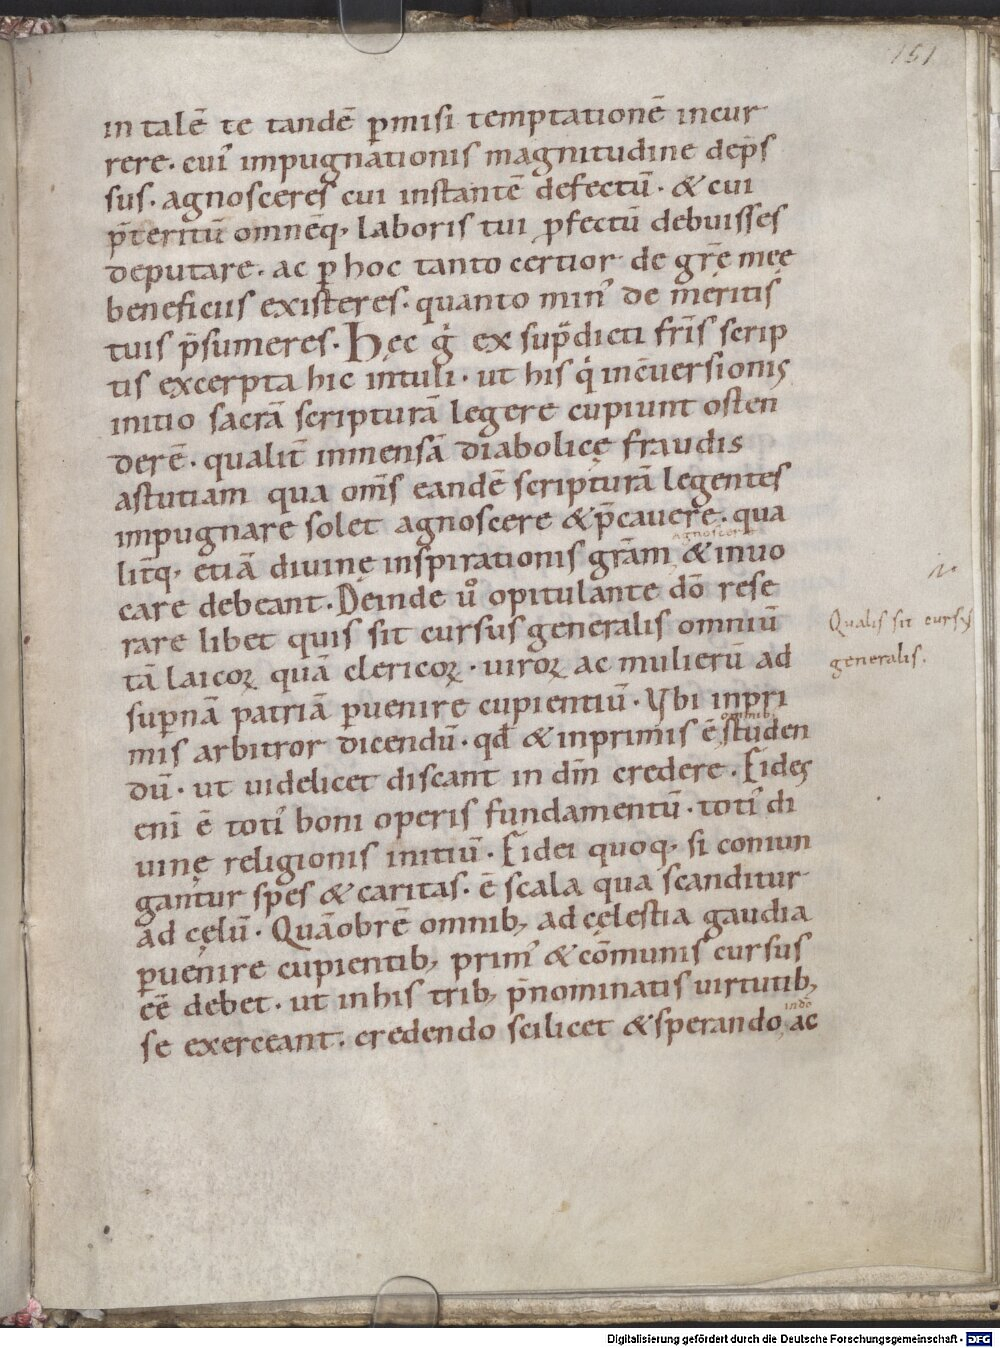 151
in talē te tandē ꝑmisi temptationē incur
rere. cui᾽ impugnationis magnitudine dep̄s
sus. agnosceres cui instantē defectū. & cui
p̄teritū omnēq; laboris tui ꝓfectū debuisses
deputare. ac ꝑ hoc tanto certior de gr̄ę meę
beneficiis existeres. quanto min᾽ de meritis
tuis p̄sumeres. Hęc g̊ ex sup̄dicti fr̄is scrip
tis excerpta hic intuli. ut his q̇ in c̄uersionis
initio sacrā scripturā legere cupiunt osten
derē. qualit̄ inmensā diabolicę fraudis
astutiam qua om̄s eandē scripturā legentes
impugnare solet agnoscere & p̄cauere. qua
agnoscere
lit̄q; etiā diuinę inspirationis gr̄am, & inuo
care debeant. Deinde ů opitulante dō rese
rare libet quis sit cursus generalis omniū
Qualis sit cursus
tā laicoꝝ quā clericoꝝ. uiroꝝ ac mulierū ad
generalis.
suꝑnā patriā ꝑuenire cupientiū. Vbi inpri
omnib;
mis arbitror dicendū. qd̄ & inprimis ē studen
dū. ut uidelicet discant in dn̄m credere. Fides
eni᾽ ē toti᾽ boni operis fundamentū. toti᾽ di
uinę religionis initiū. Fidei quoq; si coniun
gantur spes & caritas. ē scala qua scanditur
ad cęlū. Quāobrē omnib; ad cęlestia gaudia
ꝑuenire cupientib; prim᾽ & cōmunis cursus
eē debet. ut in his trib; p̄nominatis uirtutib;
in dō
se exerceant. credendo scilicet & sperando, ac
Digitalisierung gefördert durch die Deutsche Forschungsgemeinschaft - DFG